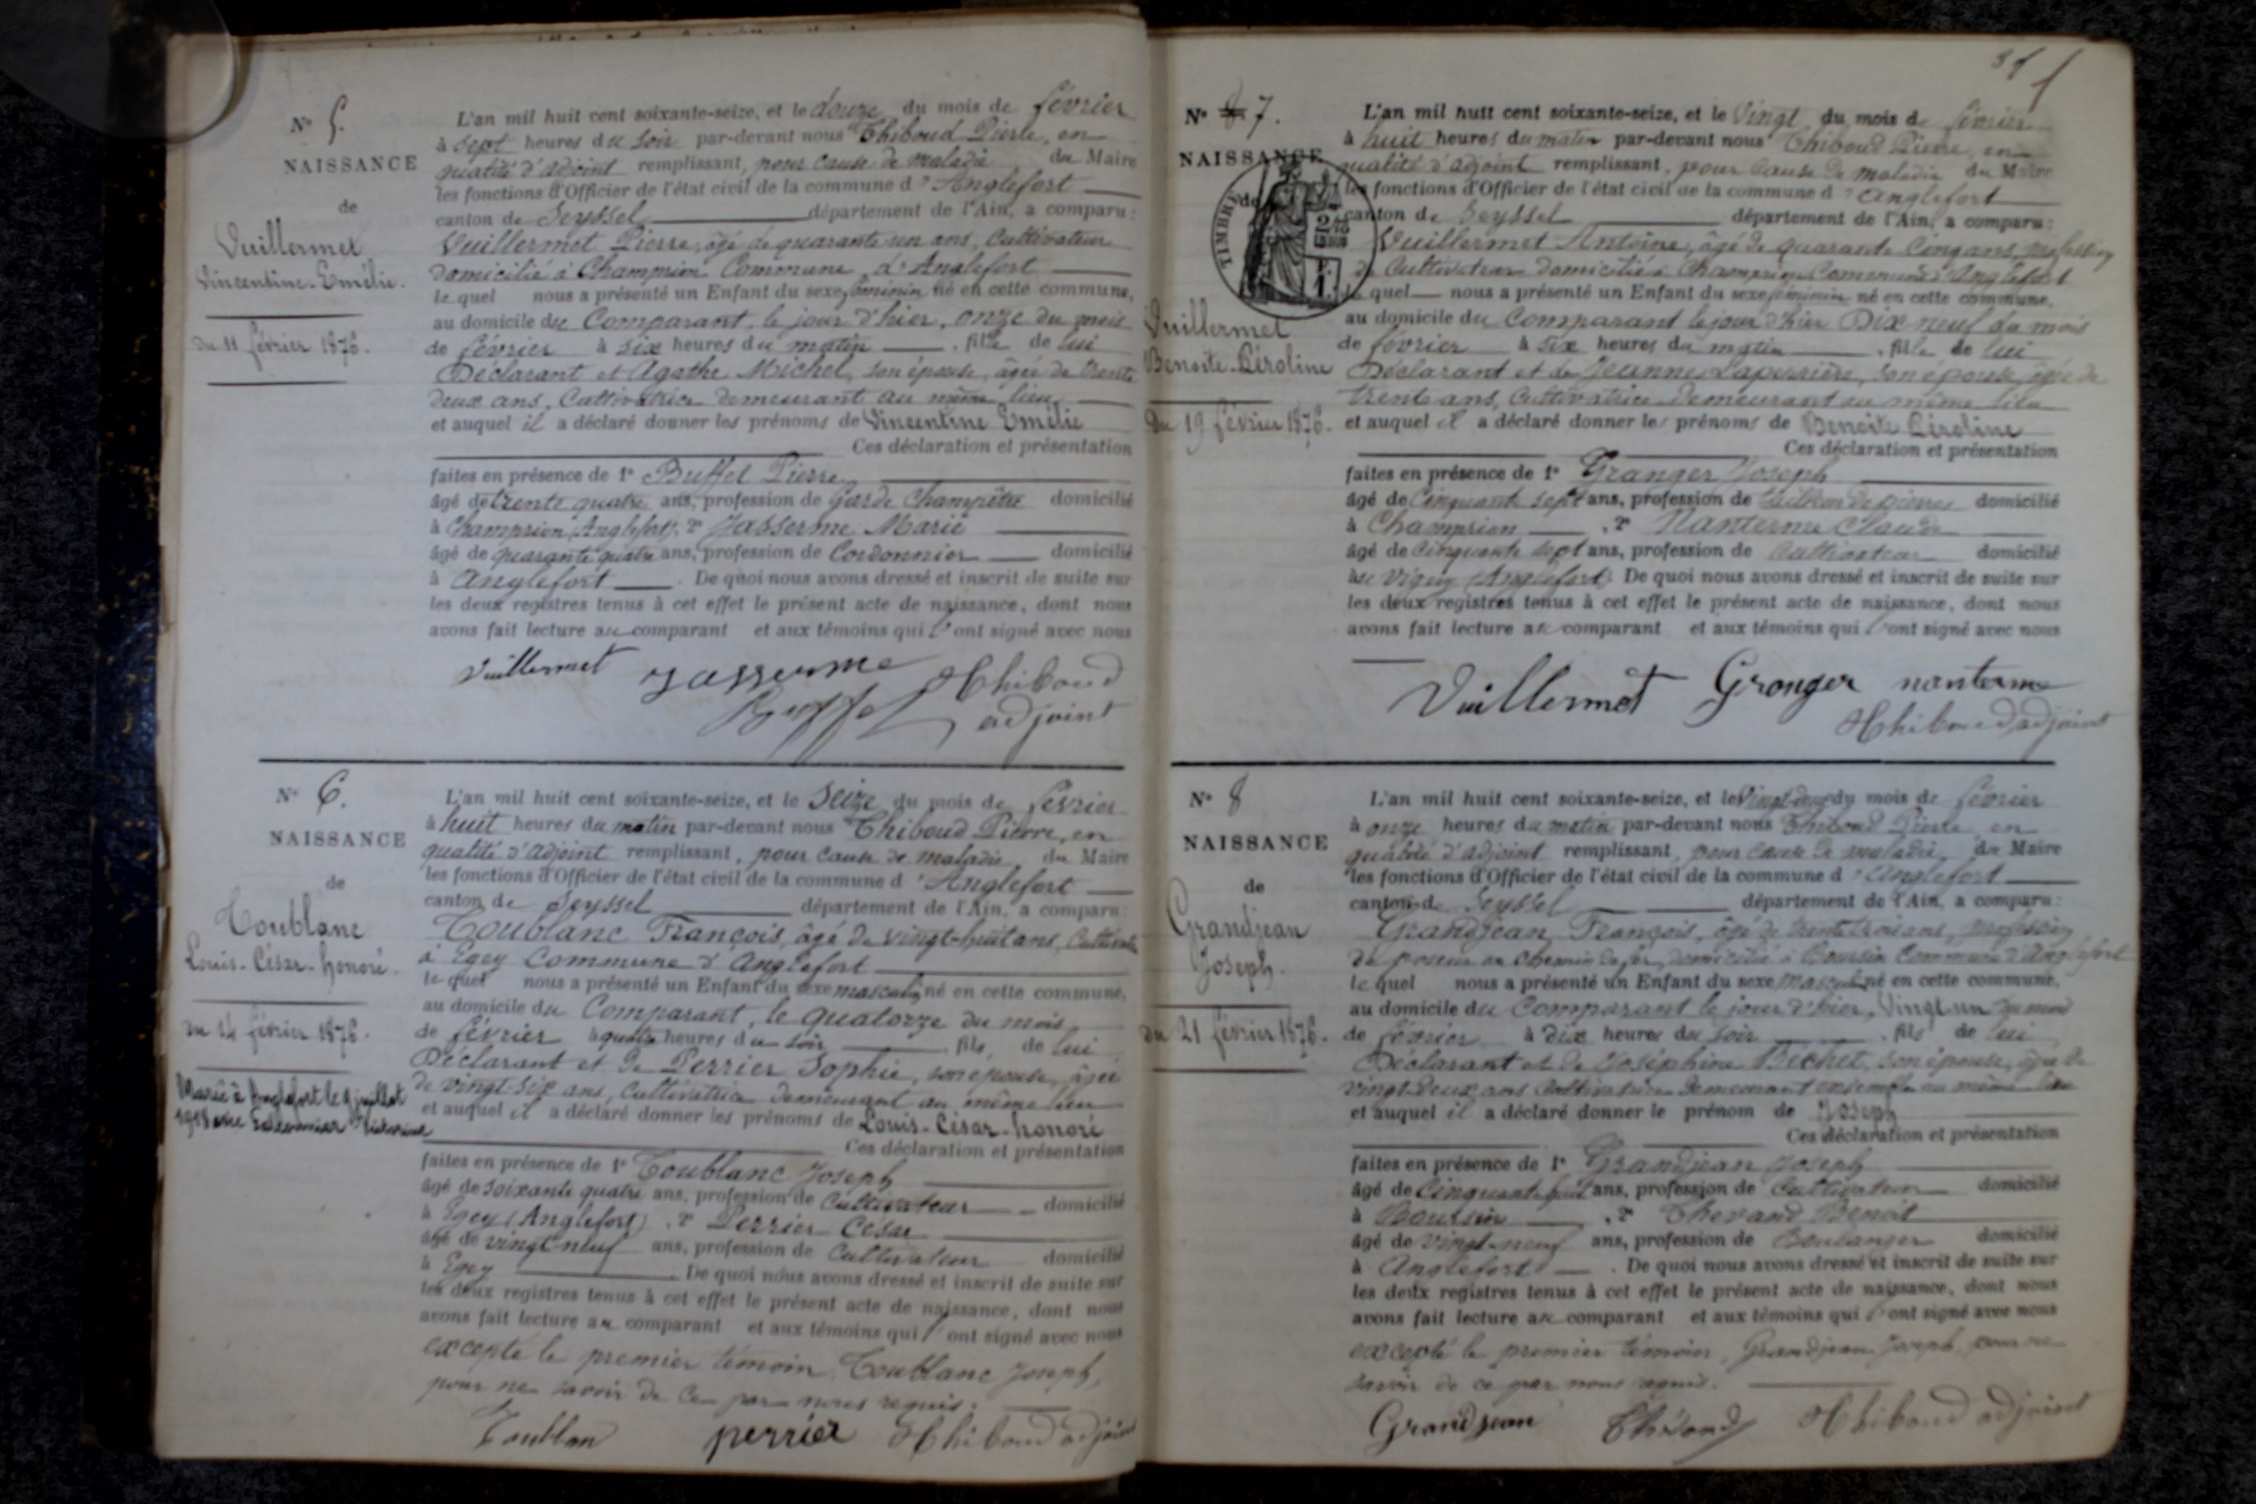 N° 5.
NAISSANCE
de
Vuillermet
Vincentine-Emélie.
du 11 février 1876.
L'an mil huit cent soixante-seize, et le douze du mois de février
à sept heures du soir par-devant nous Thiboud Pierre, en
qualité d'adjoint remplissant, pour cause de maladie du Maire
les fonctions d'Officier de l'état civil de la commune d'Anglefort
canton de Seyssel département de l'Ain, a comparu:
Vuillermet Pierre, âgé de quarante un ans, Cultivateur
domicilié à Champrion Commune d'Anglefort
lequel nous a présenté un Enfant du sexe féminin né en cette commune,
au domicile du Comparant, le jour d'hier, onze du mois
de février à six heures du matin, fille de lui
Déclarant et Agathe Michel, son épouse, âgée de trente
deux ans, Cultivatrice demeurant au même lieu
et auquel il a déclaré donner les prénoms de Vincentine Emélie
Ces déclaration et présentation
faites en présence de 1° Buffet Pierre
âgé de trente quatre ans, profession de Garde Champêtre domicilié
à Champrion (Anglefort), 2° Jasserme Marie
âgé de quarante quatre ans, profession de Cordonnier domicilié
à Anglefort. De quoi nous avons dressé et inscrit de suite sur
les deux registres tenus à cet effet le présent acte de naissance, dont nous
avons fait lecture au comparant et aux témoins qui l'ont signé avec nous
Vuillermet Jasserme Thiboud
Buffet adjoint
N° 6.
NAISSANCE
de
Toublanc
Louis-César-honoré.
du 14 février 1876.
Marié à Anglefort le 9 juillet
1918 avec Victorine
L'an mil huit cent soixante-seize, et le Seize du mois de février
à huit heures du matin par-devant nous Thiboud Pierre, en
qualité d'adjoint remplissant, pour cause de maladie, du Maire
les fonctions d'Officier de l'état civil de la commune d'Anglefort
canton de Seyssel département de l'Ain, a comparu:
Toublanc François, âgé de vingt-huit ans, Cultivateur
à Egey Commune d'Anglefort
lequel nous a présenté un Enfant du sexe masculin né en cette commune,
au domicile du Comparant, le quatorze du mois
de février à quatre heures du soir, fils, de lui
Déclarant et de Perrier Sophie, son épouse, âgée
de vingt-six ans, Cultivatrice demeurant au même lieu
et auquel il a déclaré donner les prénoms de Louis-César-honoré
Ces déclaration et présentation
faites en présence de 1° Toublanc Joseph
âgé de soixante quatre ans, profession de Cultivateur domicilié
à Egey (Anglefort), 2° Perrier César
âgé de vingt-neuf ans, profession de Cultivateur domicilié
à Egey. De quoi nous avons dressé et inscrit de suite sur
les deux registres tenus à cet effet le présent acte de naissance, dont nous
avons fait lecture au comparant et aux témoins qui l'ont signé avec nous
excepté le premier témoin Toublanc Joseph,
pour ne savoir de ce par nous requis.
Toublan perrier Thiboud adjoint
N° 7.
NAISSANCE
de
TIMBRE
Vuillermet
Benoite-Péroline
du 19 février 1876.
L'an mil huit cent soixante-seize, et le Vingt du mois de février
à huit heures du matin par-devant nous Thiboud Pierre, en
qualité d'adjoint remplissant, pour cause de maladie du Maire
les fonctions d'Officier de l'état civil de la commune d'Anglefort
canton de Seyssel département de l'Ain, a comparu:
Vuillermet Antoine, âgé de quarante Cinq ans, profession
de Cultivateur domicilié à Champrion Commune d'Anglefort
lequel nous a présenté un Enfant du sexe féminin né en cette commune,
au domicile du Comparant le jour d'hier Dix neuf du mois
de février à six heures du matin, fille de lui
Déclarant et de Jeanne Laperrière, son épouse, âgée de
trente ans, Cultivatrice demeurant au même lieu
et auquel il a déclaré donner les prénoms de Benoite Péroline
Ces déclaration et présentation
faites en présence de 1° Granger Joseph
âgé de Cinquante sept ans, profession de tailleur de pierres domicilié
à Champrion, 2° Nanterme Claude
âgé de Cinquante sept ans, profession de Cultivateur domicilié
(Anglefort). De quoi nous avons dressé et inscrit de suite sur
les deux registres tenus à cet effet le présent acte de naissance, dont nous
avons fait lecture au comparant et aux témoins qui l'ont signé avec nous
Vuillermet Granger nanterme
Thiboud adjoint
N° 8
NAISSANCE
de
Grandjean
Joseph.
du 21 février 1876.
L'an mil huit cent soixante-seize, et le Vingt-deux du mois de février
à onze heures du matin par-devant nous Thiboud Pierre en
qualité d'adjoint remplissant, pour cause de maladie, du Maire
les fonctions d'Officier de l'état civil de la commune d'Anglefort
canton de Seyssel département de l'Ain, a comparu:
Grandjean François, âgé de trente trois ans, profession
de poseur au chemin de fer, domicilié à Boursin Commune d'Anglefort
lequel nous a présenté un Enfant du sexe Masculin né en cette commune,
au domicile du Comparant le jour d'hier, Vingt-un du mois
de février à dix heures du soir, fils de lui
Déclarant et de Joséphine Béchet, son épouse, âgée de
vingt-deux ans Cultivatrice demeurant ensemble au même lieu
et auquel il a déclaré donner le prénom de Joseph
Ces déclaration et présentation
faites en présence de 1° Grandjean Joseph
âgé de Cinquante huit ans, profession de Cultivateur domicilié
à Boursin, 2° Benoit
âgé de Vingt-neuf ans, profession de Boulanger domicilié
à Anglefort. De quoi nous avons dressé et inscrit de suite sur
les deux registres tenus à cet effet le présent acte de naissance, dont nous
avons fait lecture au comparant et aux témoins qui l'ont signé avec nous
excepté le premier témoin, Grandjean Joseph pour ne
savoir de ce par nous requis.
Grandjean Thiboud adjoint